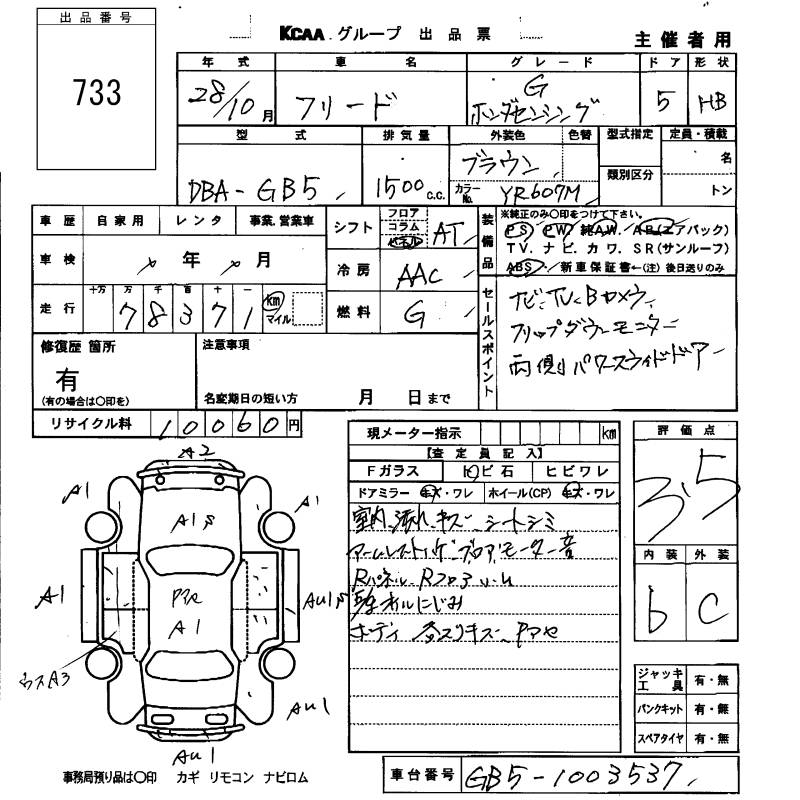 出品番号
733
KCAA グループ 出品票
主催者用
年式 車名 グレード ドア 形状
28/10月 フリード G ホンダセンシング 5 HB
型式 排気量 外装色 色替 型式指定 定員・積載
類別区分
名
トン
DBA-GB5 1500 c.c. ブラウン カラーNo. YR607M
車歴 自家用 レンタ 事業.営業車
車検 年 月
走行 十万 万 千 百 十 一
78371 km マイル
シフト フロア コラム パネル AT
冷房 AAC
燃料 G
装備品
※純正のみ〇印をつけて下さい。
PS PW 純AW. AB(エアバック)
TV. ナビ. カワ. SR(サンルーフ)
ABS 新車保証書←(注) 後日送りのみ
セールスポイント
ナビ.TV.Bカメラ
フリップダウンモニター
両側パワースライドドアー
修復歴 箇所
有
(有の場合は〇印を)
注意事項
名変期日の短い方 月 日まで
リサイクル料 10060円
現メーター指示 km
【査定員記入】
Fガラス トビ石 ヒビワレ
ドアミラー キズ・ワレ ホイール(CP) キズ・ワレ
室内汚れ.キズ シートシミ
ブロアモーター音
Rパネル Rフロア
オイルにじみ
ボディ キズ
評価点
3.5
内装 外装
b C
ジャッキ工具 有・無
パンクキット 有・無
スペアタイヤ 有・無
A2
A1
A1
A1
A1
AU1
A1
ウスA3
AU1
AU1
事務局預り品は〇印 カギ リモコン ナビロム
車台番号 GB5-1003537